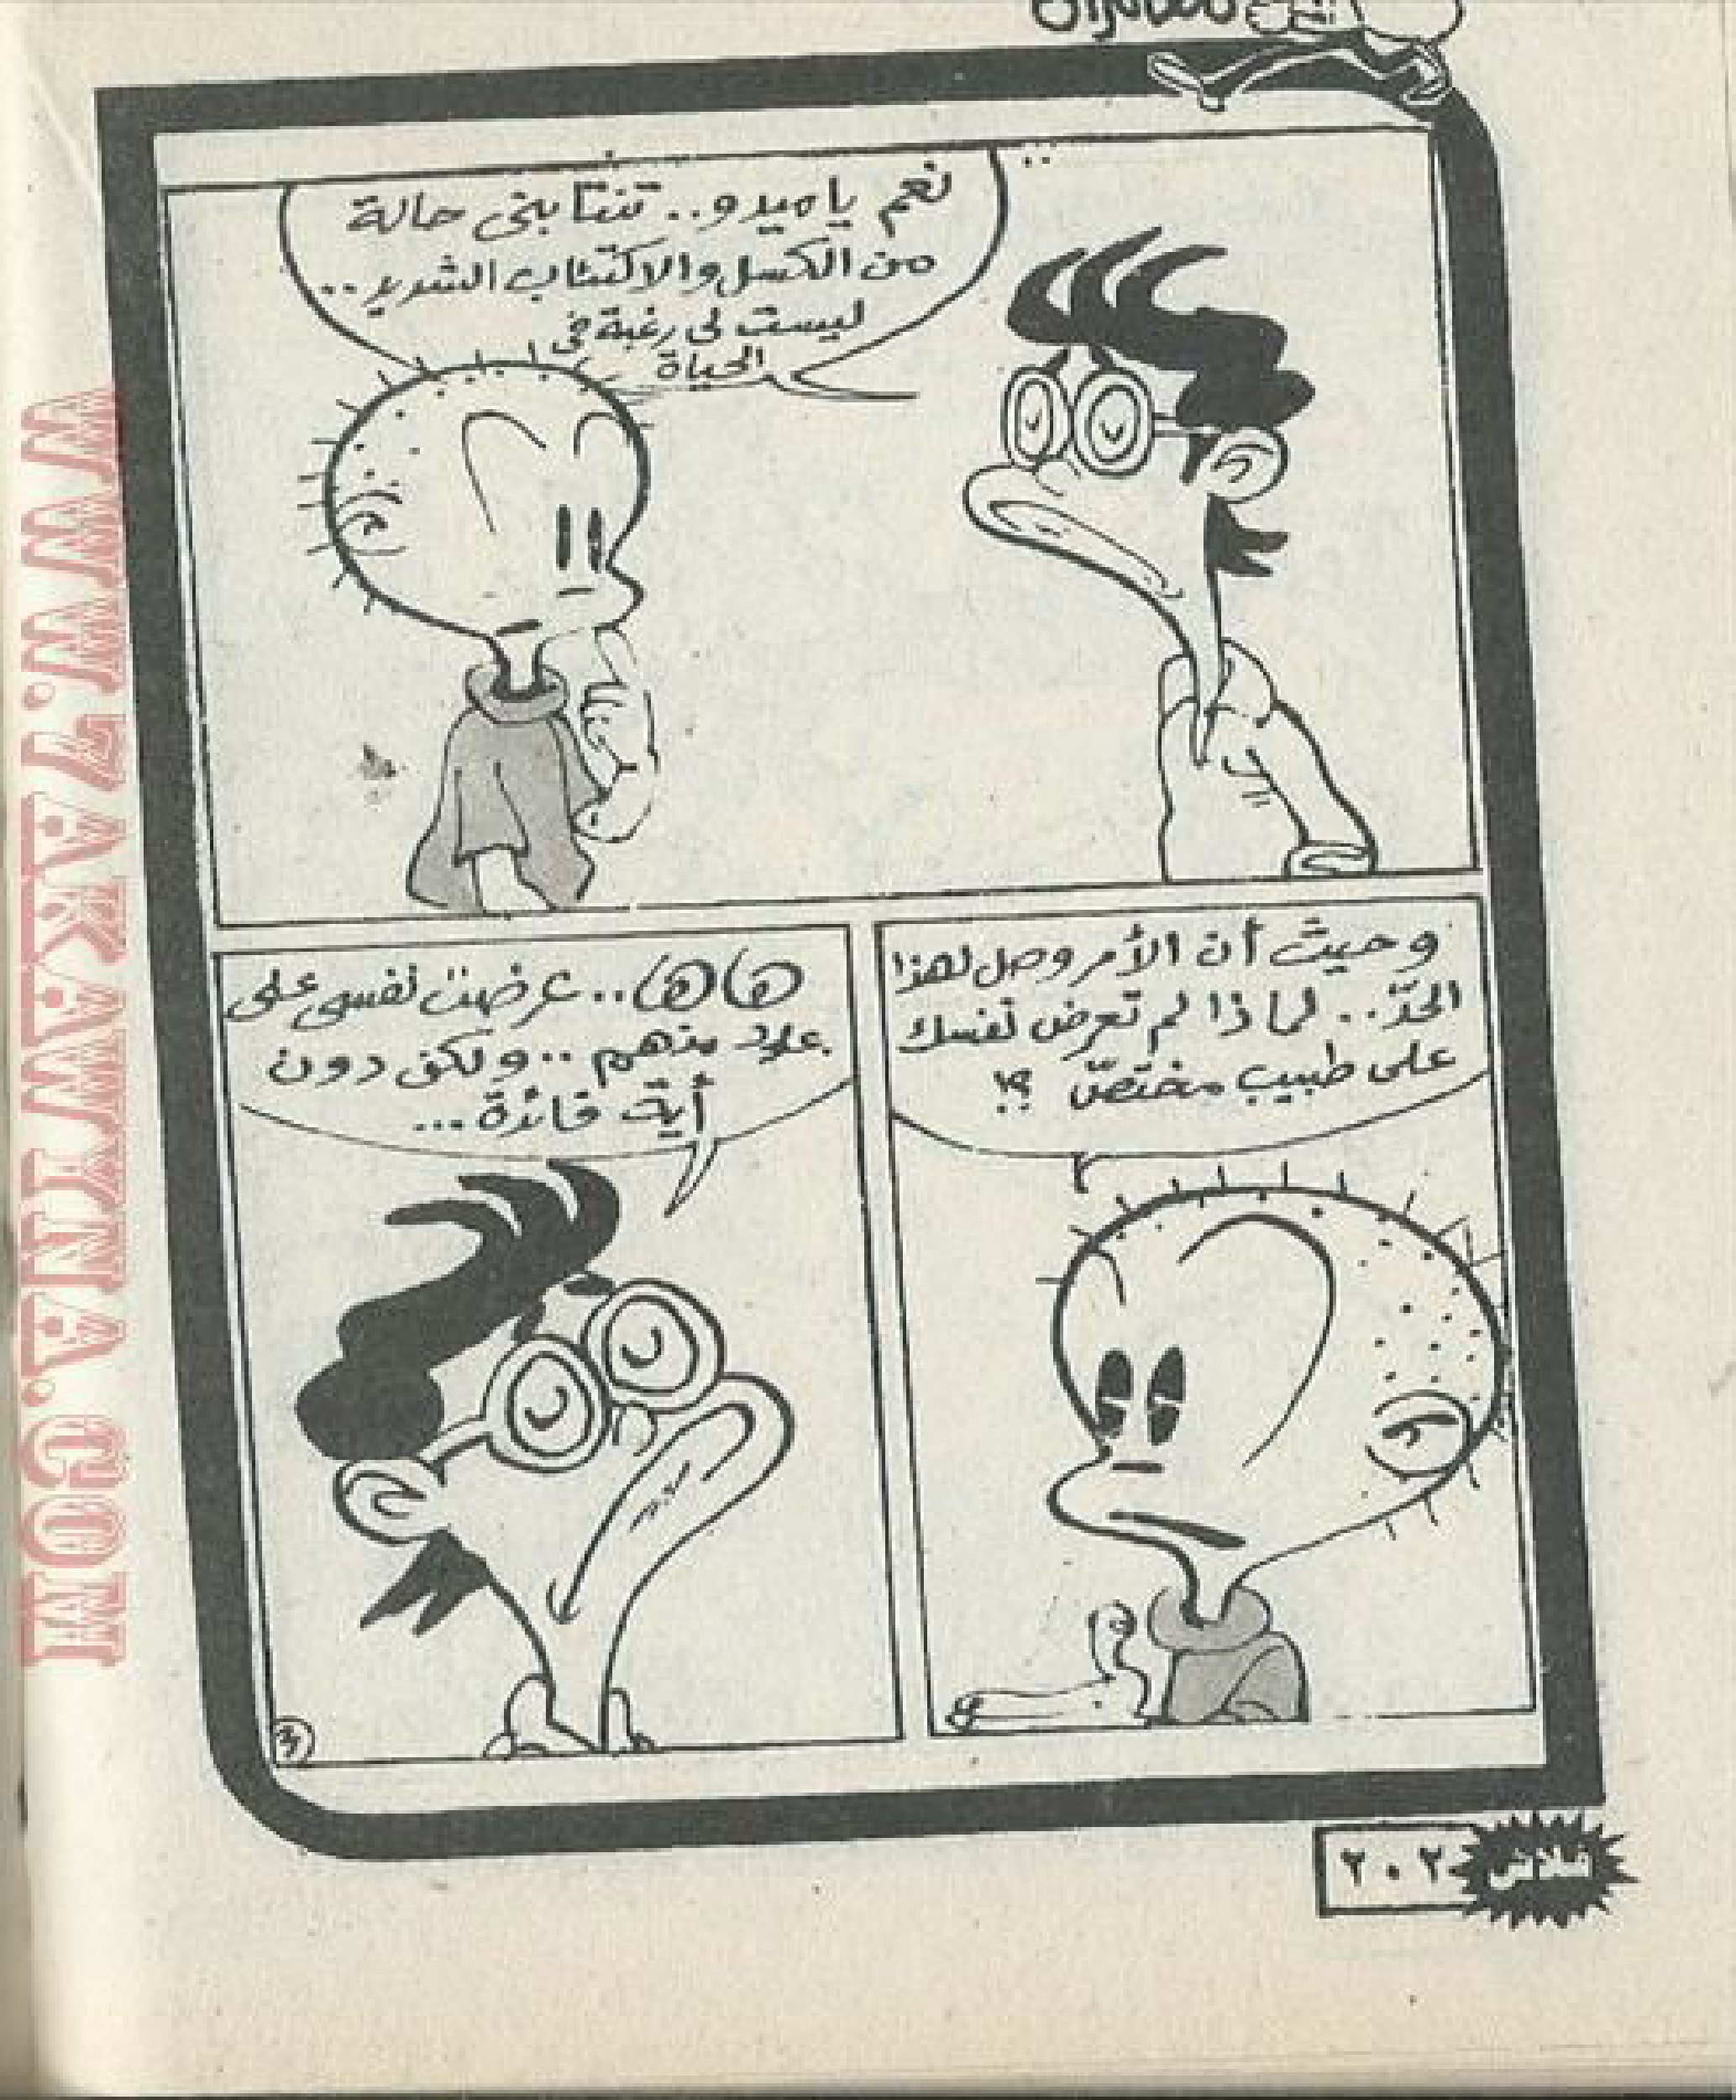 نعم يا ميدو.. تنتابنى حالة
من الكسل والاكتئاب الشديد..
ليست لى رغبة فى
الحياة
وحيث أن الأمر وصل لهذا
الحدّ.. لماذا لم تعرض نفسك
على طبيب مختصّ ؟!
هاها.. عرضت نفسى على
عدد منهم.. ولكن دون
أية فائدة...
٣
فلاش
٢٠٢
WWW.7AKAWITNA.COM